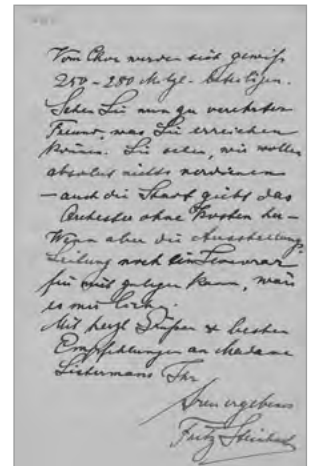 Vom Chor werden sich gewiß
250 – 280 Mitgl. beteiligen.
Sehen Sie nun zu verehrter
Freund, was Sie erreichen
können. Sie sehen, wir wollen
absolut nichts verdienen
– auch die Stadt giebt das
Orchester ohne Kosten her –
Wenn aber die Ausstellungs-
Leitung noch ein Honorar
für mich zulegen kann, wär's
es mir lieb.
Mit herzl Grüßen & besten
Empfehlungen an Madame
Ihr
treu ergebener
Fritz Steinbach